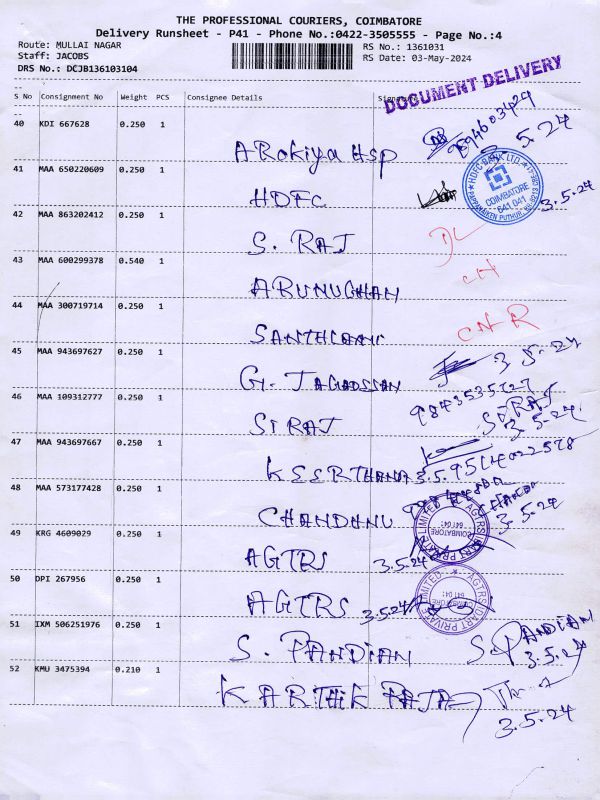 THE PROFESSIONAL COURIERS, COIMBATORE
Delivery Runsheet - P41 - Phone No.:0422-3505555 - Page No.:4
Route: MULLAI NAGAR
RS No.: 1361031
Staff: JACOBS
RS Date: 03-May-2024
DRS No.: DCJB136103104
DOCUMENT DELIVERY
S No Consignment No Weight PCS Consignee Details
40 KDI 667628 0.250 1
5.24
AROKIYA HSP
41 MAA 650220609 0.250 1
HDFC BANK LTD.
COIMBATORE
641 041
HDFC
3.5.24
42 MAA 863202412 0.250 1
S. RAJ
DL
43 MAA 600299378 0.540 1
ARUNUGHAN
44 MAA 300719714 0.250 1
CNR
45 MAA 943697627 0.250 1
3.5.24
46 MAA 109312777 0.250 1
SIRAJ
SIRAJ
3.5.24
47 MAA 943697667 0.250 1
3.5.
48 MAA 573177428 0.250 1
3.5.24
CHANDHNU
49 KRG 4609029 0.250 1
AGTRS
3.5.24
COIMBATORE
641 041
50 DPI 267956 0.250 1
AGTRS
3.5.24
641 041
51 IXM 506251976 0.250 1
S. PANDIAN
S. PANDIAN
3.5.24
52 KMU 3475394 0.210 1
KARTHIK RAJA
3.5.24